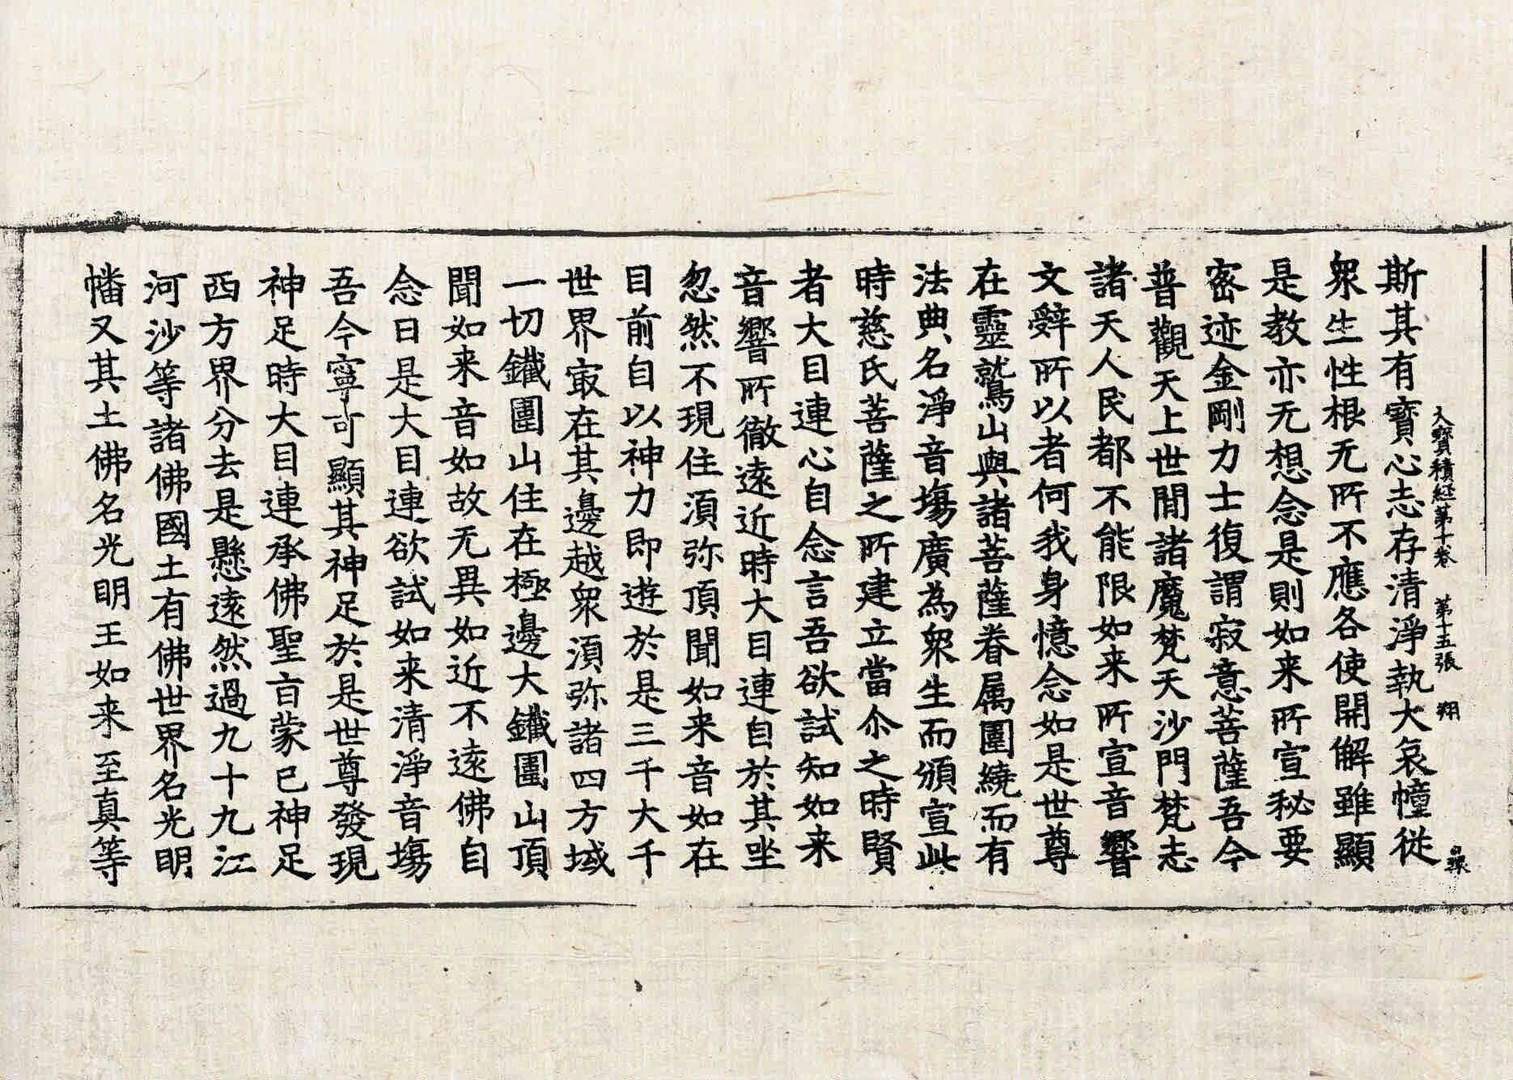 大寶積經第十卷 第十五張 翔
斯其有寶心志存清淨執大哀幢從
衆生性根无所不應各使開解雖顯
是教亦无想念是則如来所宣秘要
密迹金剛力士復謂寂意菩薩吾今
普觀天上世閒諸魔梵天沙門梵志
諸天人民都不能限如来所宣音響
文辝所以者何我身憶念如是世尊
在靈鷲山與諸菩薩眷属圍繞而有
法典名淨音塲廣為衆生而頒宣此
時慈氏菩薩之所建立當尒之時賢
者大目連心自念言吾欲試知如来
音響所徹遠近時大目連自於其坐
忽然不現住湏弥頂聞如来音如在
目前自以神力即遊於是三千大千
世界㝡在其邊越衆湏弥諸四方域
一切鐵圍山住在極邊大鐵圍山頂
聞如来音如故无異如近不遠佛自
念曰是大目連欲試如来清淨音塲
吾今寧可顯其神足於是世尊發現
神足時大目連承佛聖旨蒙已神足
西方界分去是懸遠然過九十九江
河沙等諸佛國土有佛世界名光明
幡又其土佛名光明王如来至真等